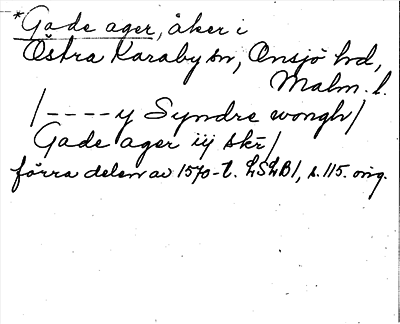 *Gade ager, åker i
Östra Karaby sn, Onsjö hd,
Malm. l.
/----y Syndre wongh/
Gade ager iij skr/
förra delen av 1570-t. LSLB1, s. 115. orig.